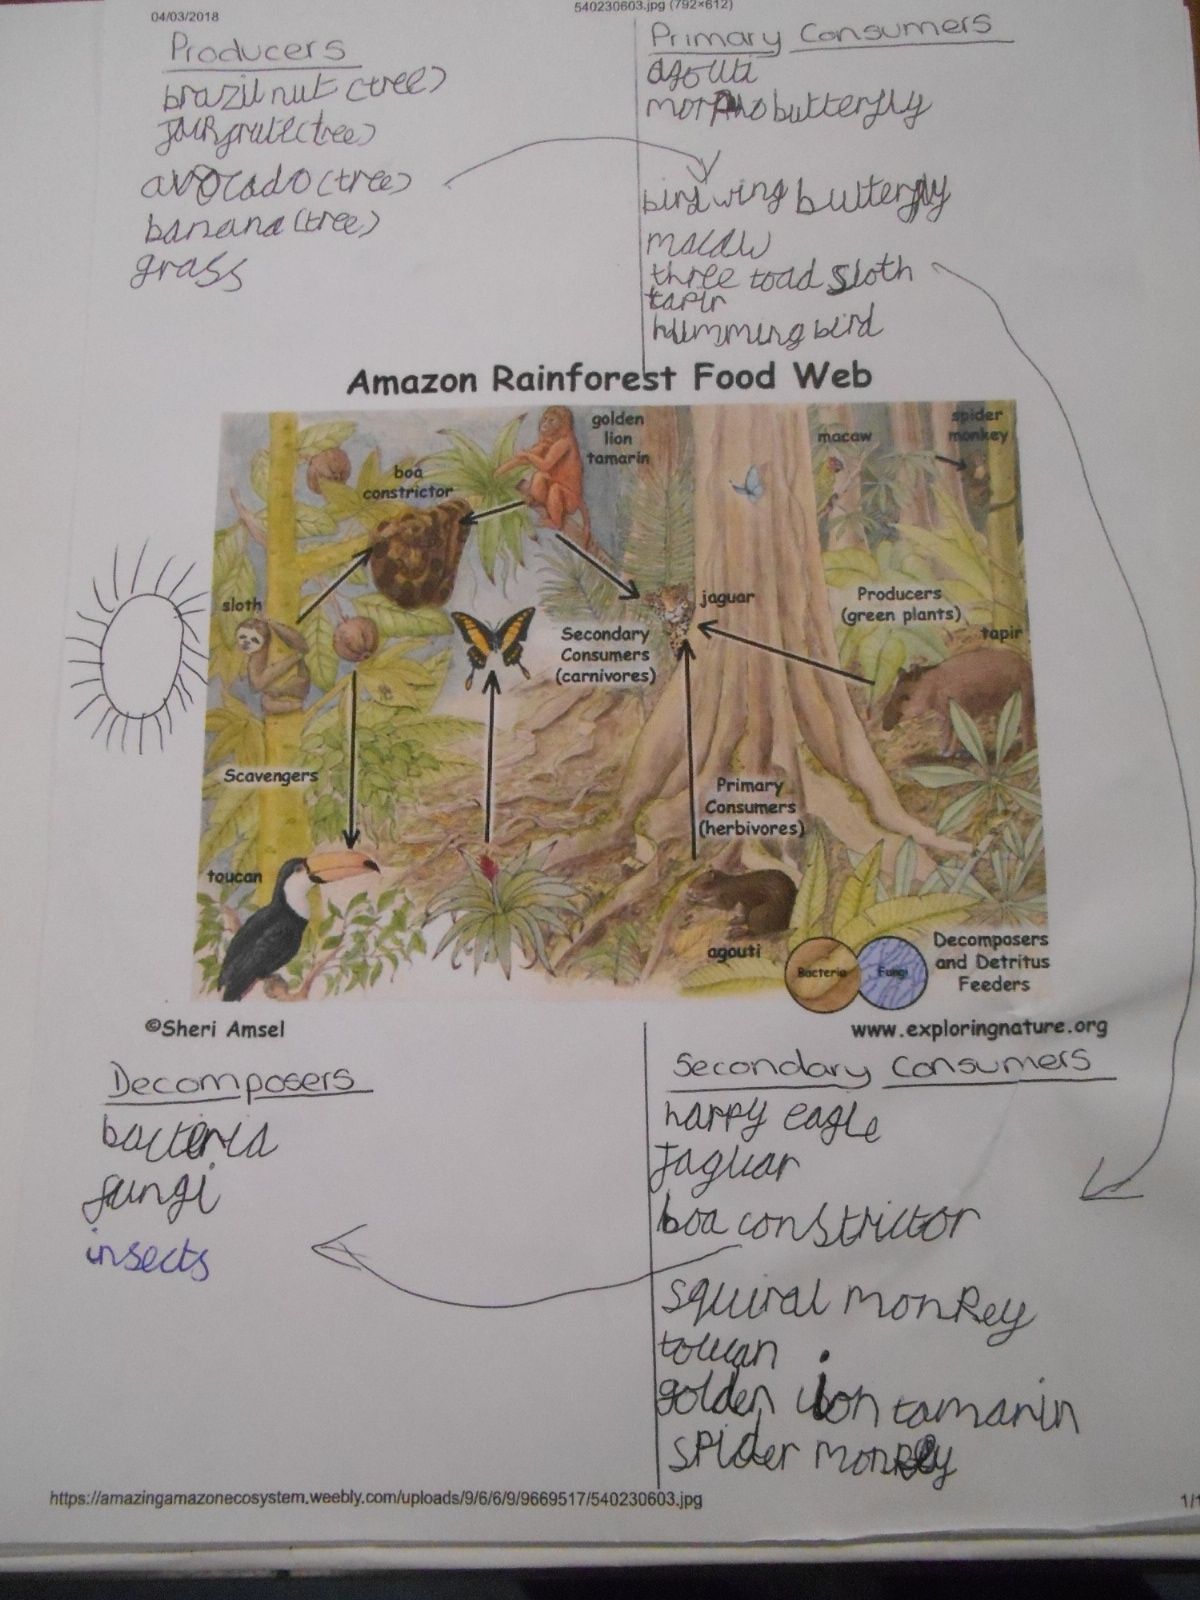 04/03/2018
540230603.jpg (792×612)
Producers
brazil nut (tree)
(tree)
avocado (tree)
banana (tree)
grass
Primary Consumers
agouti
morpho butterfly
bird wing butterfly
macaw
three toad sloth
tapir
humming bird
Amazon Rainforest Food Web
golden
lion
tamarin
boa
constrictor
macaw
spider
monkey
sloth
jaguar
Producers
(green plants)
tapir
Secondary
Consumers
(carnivores)
Scavengers
Primary
Consumers
(herbivores)
toucan
agouti
Bacteria
Fungi
Decomposers
and Detritus
Feeders
©Sheri Amsel
www.exploringnature.org
Decomposers
bacteria
fungi
insects
Secondary Consumers
harpy eagle
Jaguar
boa constrictor
squiral monkey
toucan
golden lion tamarin
spider monkey
https://amazingamazonecosystem.weebly.com/uploads/9/6/6/9/9669517/540230603.jpg
1/1